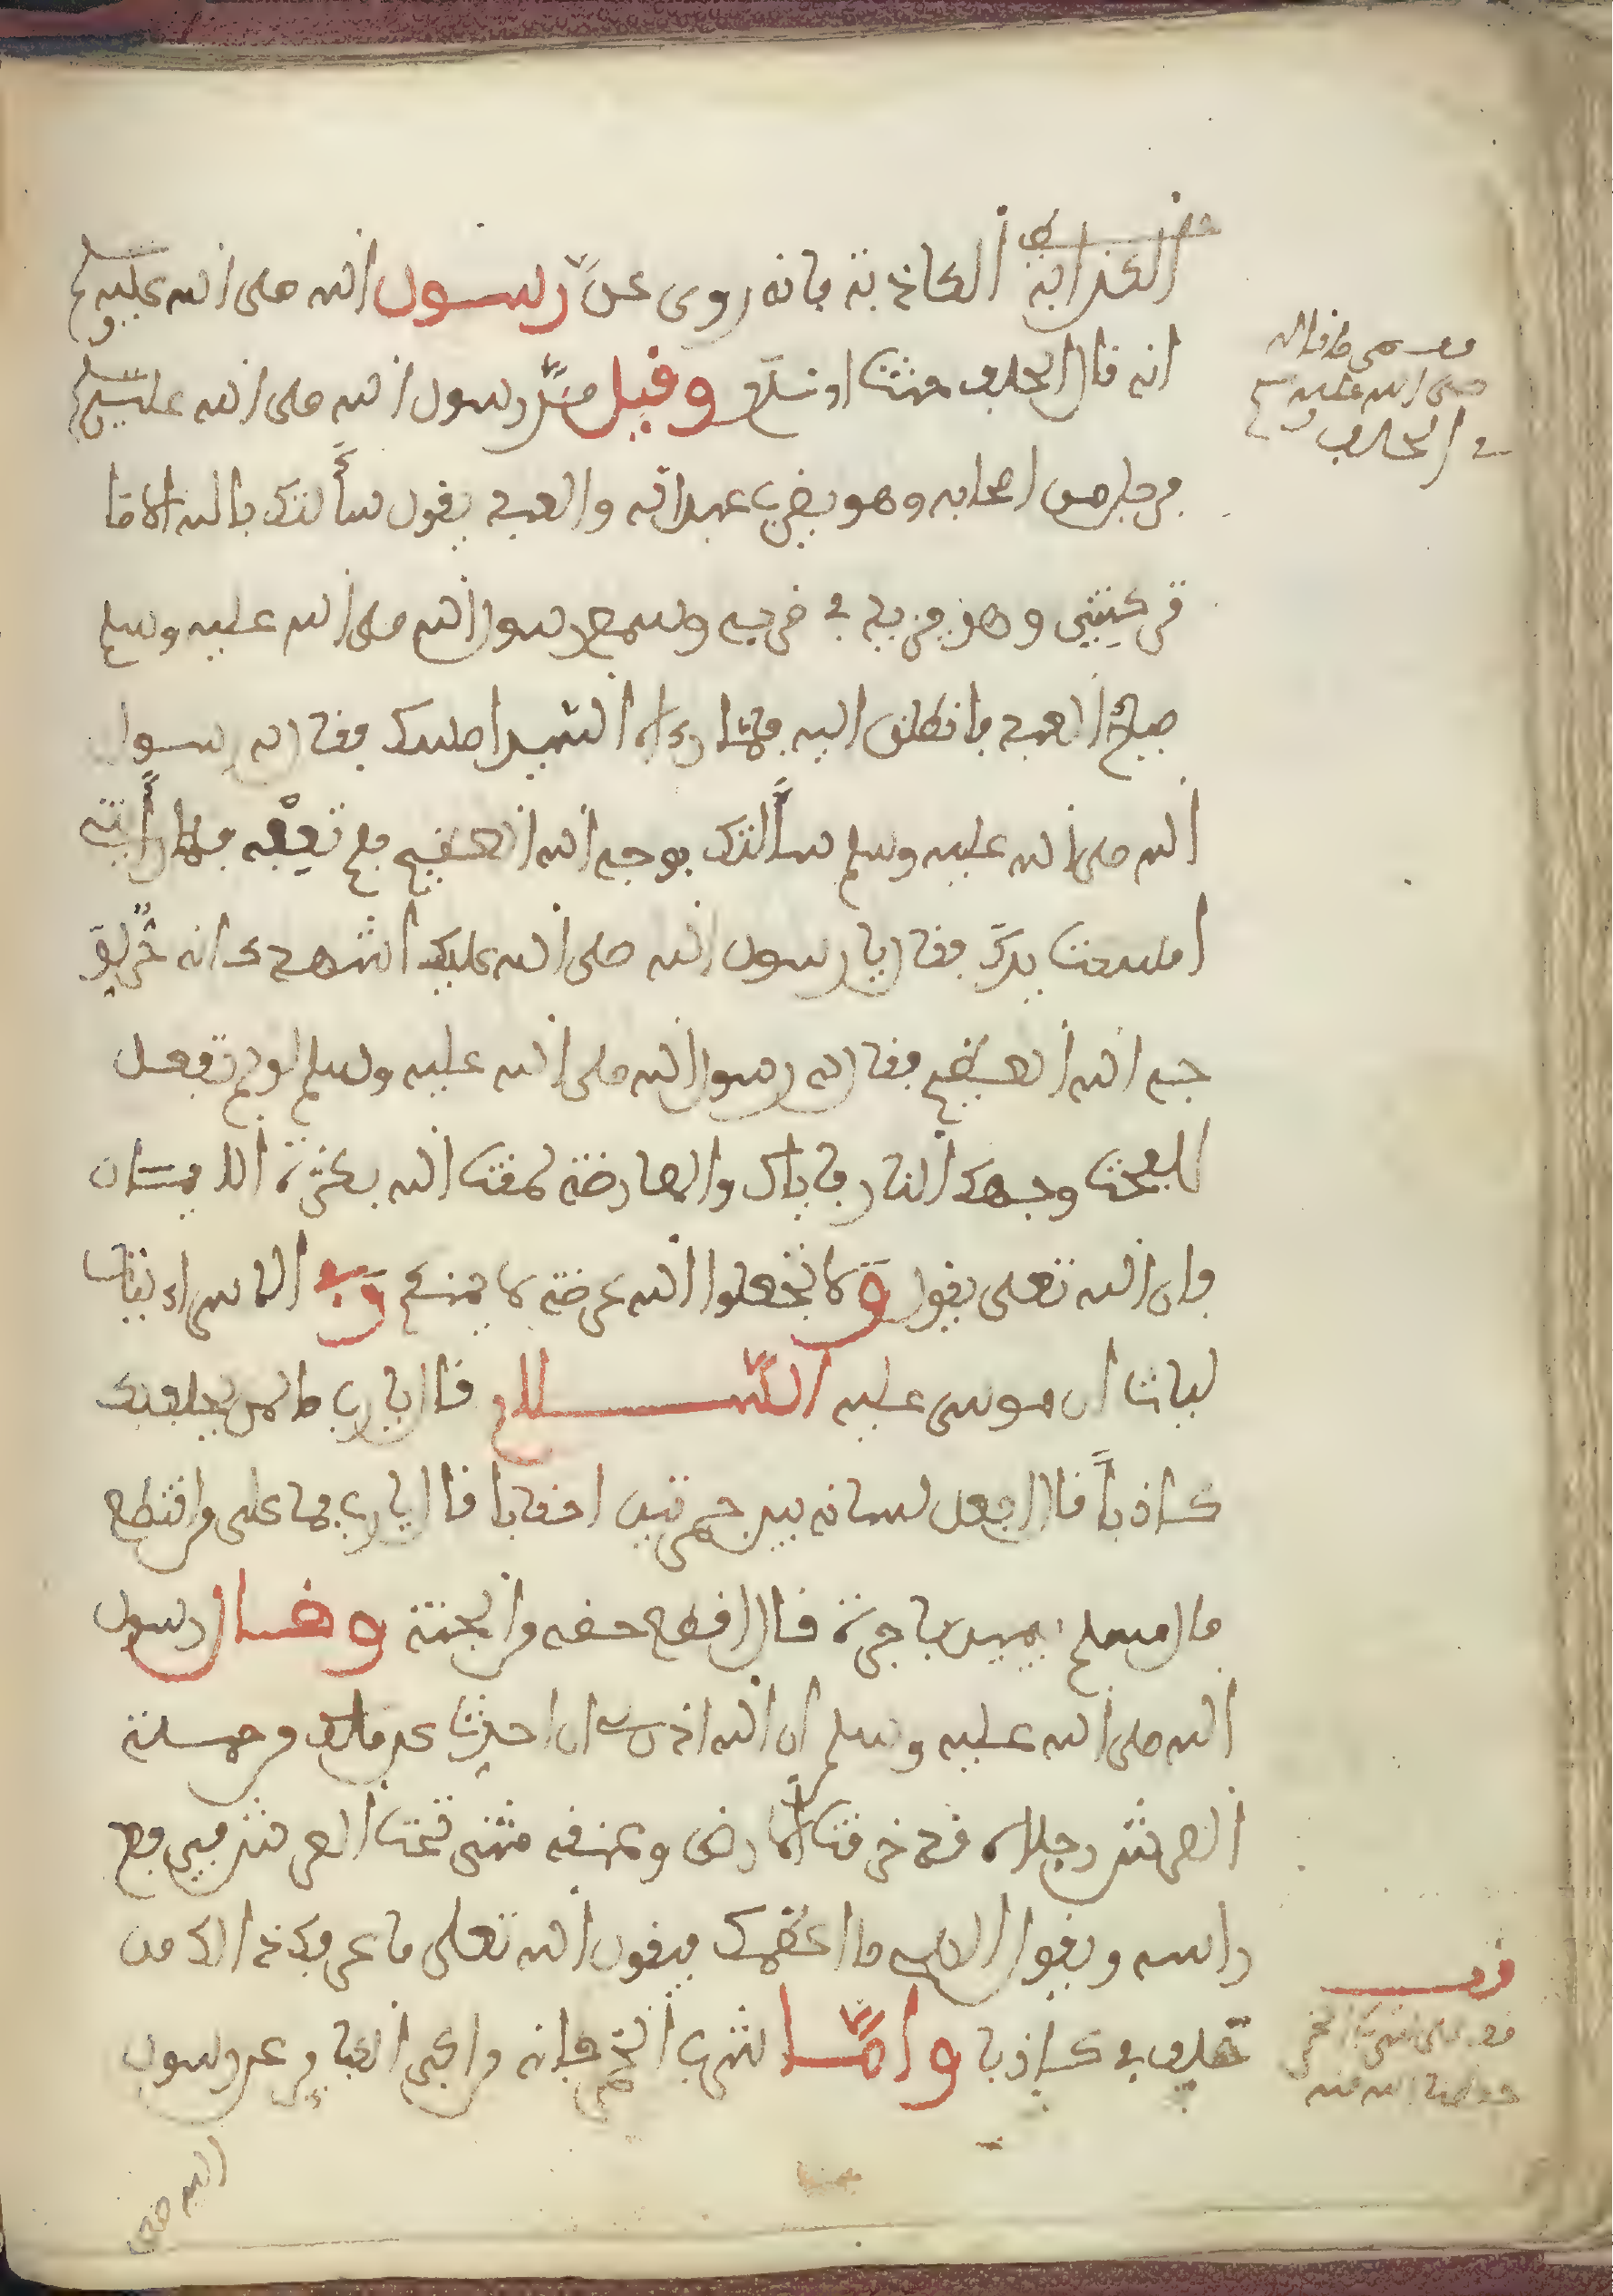 الكذابة الكاذبة فإنه روي عن رسول الله صلى الله عليه وسلم
انه قال الحلف حنث او ندم وقيل مر رسول الله صلى الله عليه وسلم
برجل من اصحابه وهو يضرب عبدا له والعبد يقول سألتك بالله الا ما
تركتني وهو يزيد في ضربه وسمع رسول الله صلى الله عليه وسلم
صياح العبد فانطلق اليه فلما رءاه السيد امسك فقال له رسول
الله صلى الله عليه وسلم سألتك بوجه الله العظيم فلم تعفه فلما رأيتني
امسكت يدك فقال يا رسول الله صلى الله عليك اشهدك انه حر لو
جه الله العظيم فقال له رسول الله صلى الله عليه وسلم لو لم تفعل
للفحت وجهك النار فاياك والمعارضة لمقت الله بكثرة الايمان
فان الله تعلى يقول ولا تجعلوا الله عرضة لايمنكم وفي الاسراءيليات
ان موسى عليه السلام قال يا رب ما لمن يحلف بك
كاذبا قال اجعل لسانه بين جمرتين احقابا قال يا رب فما على من اقتطع
مال مسلم بيمين فاجرة قال اقطع حقه من الجنة وقال رسول
الله صلى الله عليه وسلم ان الله اذن لي ان احدث عن ملك من حملة
العرش رجلاه قد خرقت الارض وعنقه مثنى تحت العرش فيرفع
راسه ويقول الاهي ما اعظمك فيقول الله تعلى ما عرف ذالك من
حلف بي كاذبا واما شرب الخمر فانه من اكبر الكبائر عن رسول
الله صلى
صلى الله عليه وسلم
في الحالف